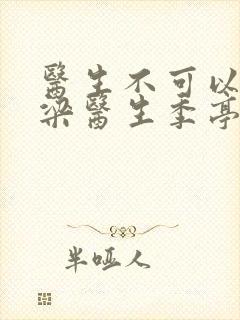 醫生不可以
梁醫生季亭
半啞人